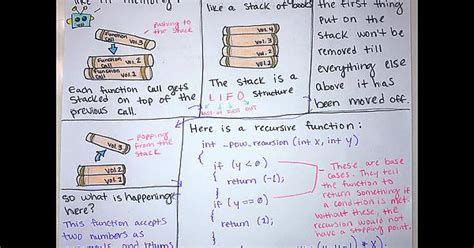 like in memory
pushing to
the stack
Function
Call
Vol. 3
Function
Call
Vol. 2
Function
Call
Vol. 1
Each function call gets
stacked on top of the
previous call.
like a stack of books
Vol. 4
Vol. 3
Vol. 2
Vol. 1
The stack is a
LIFO structure
LAST IN FIRST OUT
the first thing
put on the
stack won't be
removed till
everything else
above it has
been moved off.
Vol. 3
popping
from the
stack
Vol. 2
Vol. 1
so what is happening
here?
This function accepts
two numbers as
and returns
Here is a recursive function:
int _pow_recursion (int x, int y)
if (y < 0)
return (-1);
if (y == 0)
return (1);
These are base
cases. They tell
the function to
return something if
a condition is met.
Without these, the
recursion would not
have a stopping point.